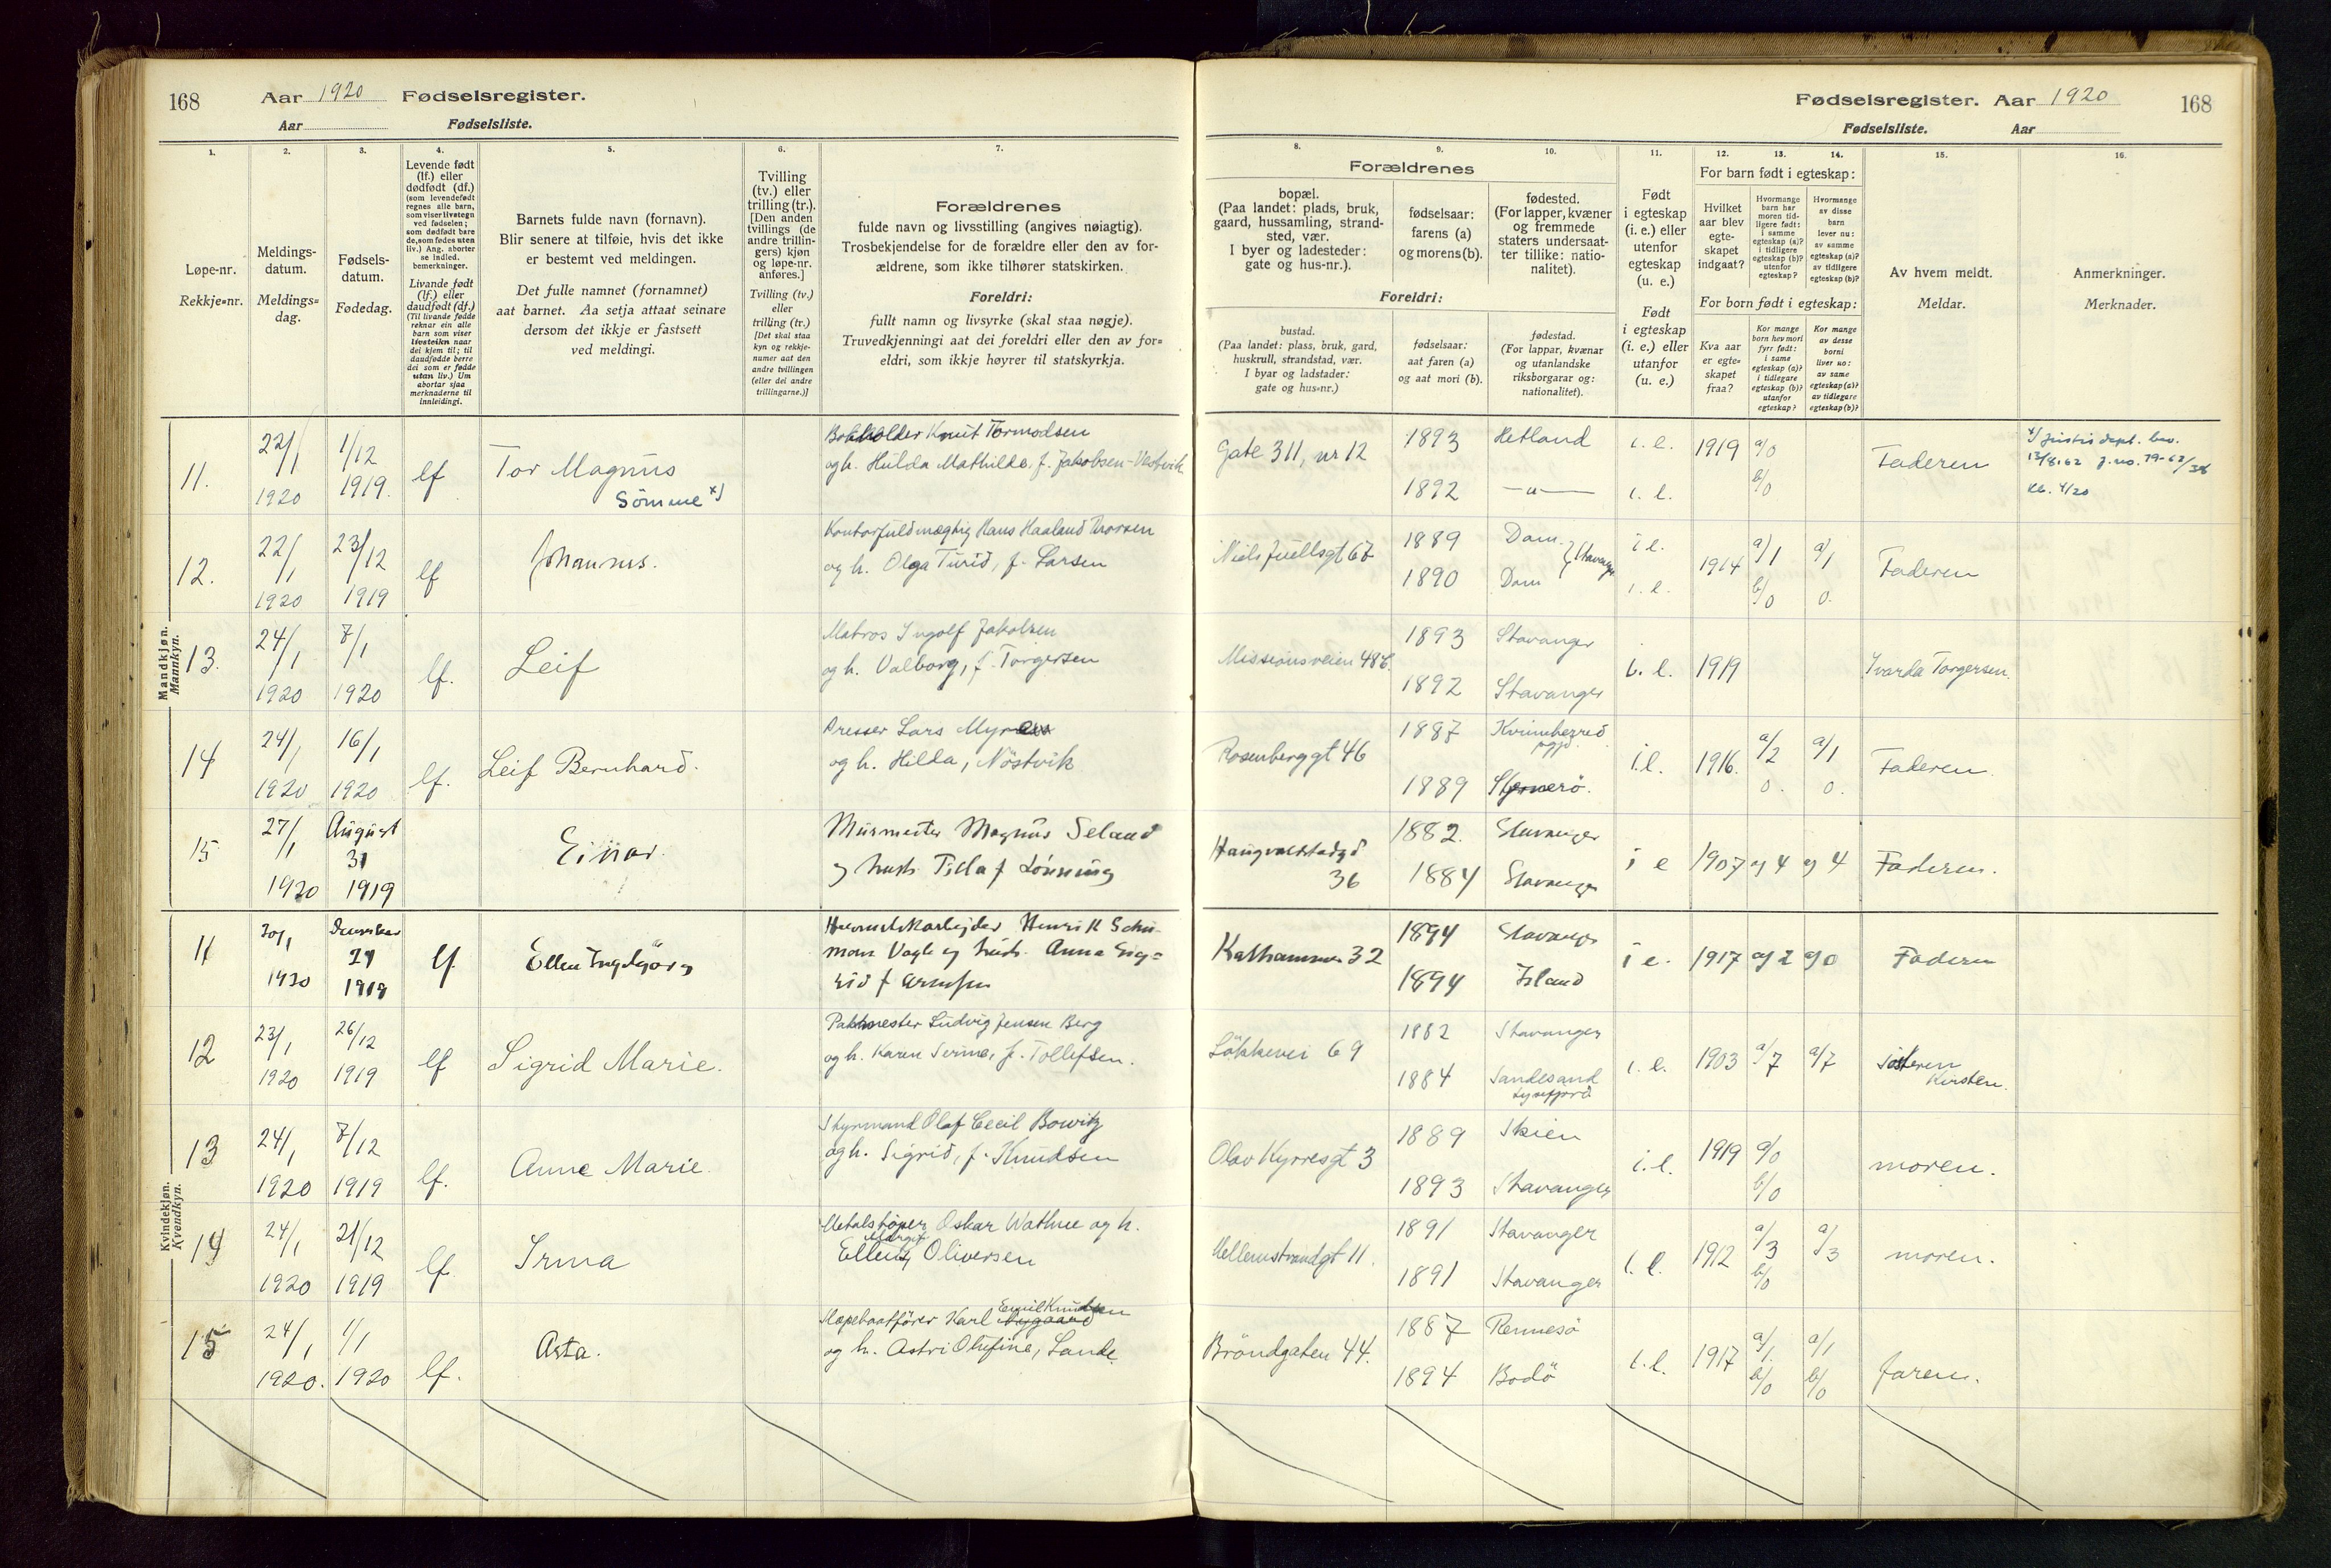 168 Aar 1920 Fødselsregister.
Aar Fødselsliste.
1. 2. 3. 4. 5. 6. 7.
Løpe-nr.
Rekkje=nr.
Meldings-
datum.
Meldings=
dag.
Fødsels-
datum.
Fødedag.
Levende født
(lf.) eller
dødfødt (df.)
(som levendefødt
regnes alle barn,
som viser livstegn
ved fødselen;
som dødfødt bare
de, som fødes uten
liv.) Ang. aborter
se indled.
bemerkninger.
Livande født
(lf.) eller
daudfødt (df.)
(Til livande fødde
reknar ein alle
barn som viser
livsteikn naar
dei kjem til; til
daudfødde berre
dei som er fødde
utan liv.) Um
abortar sjaa
merknaderne til
innleidingi.
Barnets fulde navn (fornavn).
Blir senere at tilføie, hvis det ikke
er bestemt ved meldingen.
Det fulle namnet (fornamnet)
aat barnet. Aa setja attaat seinare
dersom det ikkje er fastsett
ved meldingi.
Tvilling
(tv.) eller
trilling (tr.).
[Den anden
tvillings (de
andre trillin-
gers) kjøn
og løpe-nr.
anføres.]
Tvilling (tv.)
eller
trilling (tr.)
[Det skal staa
kyn og rekkje-
numer aat den
andre tvillingen
(eller dei andre
trillingarne.)]
Forældrenes
fulde navn og livsstilling (angives nøiagtig).
Trosbekjendelse for de forældre eller den av for-
ældrene, som ikke tilhører statskirken.
Foreldri:
fullt namn og livsyrke (skal staa nøgje).
Truvedkjenningi aat dei foreldri eller den av for=
eldri, som ikkje høyrer til statskyrkja.
Mandkjøn.
Mannkyn.
11. 22/1 1920 1/12 1919. lf Tor Magnus
Sömme x)
Bokholder Knut Tormodsen
og h. Hulda Mathilde, f. Jakobsen-Vestvik
12. 22/1 1920 23/12 1919 lf Johannes.
Kontorfuldmægtig Hans Haaland Thorsen
og h. Olga Turid, f. Larsen
13. 24/1 1920 7/1 1920 lf. Leif
Matros Ingolf Jakobsen
og h. Valborg, f. Torgersen
14 24/1 1920 16/1 1920 lf. Leif Bernhard.
Presser Lars
og h. Hilda, Nöstvik
15 27/1 1920 August 31 1919 Einar.
Murmester Magnus Seland
og hust. Tilla f Lönning
Kvindekjøn.
Kvendkyn.
11 20/1 1920 29 1919 lf. Ellen Ingebjörg
Henrik
Vagle og hust. Anna Sig=
rid f
12 23/1 1920 26/12 1919 lf Sigrid Marie.
Pakmester Ludvig Jensen Berg
og h. Karen Serine, f. Tollefsen.
13 24/1 1920 7/12 1919 lf. Anne Marie.
Styrmand Olaf Cecil Bowitz
og h. Sigrid, f. Knudsen
14 24/1 1920 21/12 1919 lf Irma
Metalstöper Oskar Wathne og h.
Margit
Ellen, Oliversen
15 24/1 1920. 1/1 1920 lf. Asta.
Emil Knudsen
Slæpebaatförer Karl Nygaard
og h. Astri Olufine, Lande.
Fødselsregister. Aar 1920 168
Fødselsliste. Aar
8. 9. 10. 11. 12. 13. 14. 15. 16.
Forældrenes
bopæl.
(Paa landet: plads, bruk,
gaard, hussamling, strand-
sted, vær.
I byer og ladesteder:
gate og hus-nr.).
fødselsaar:
farens (a)
og morens (b).
fødested.
(For lapper, kvæner
og fremmede
staters undersaat-
ter tillike: natio-
nalitet).
Foreldri:
bustad.
(Paa landet: plass, bruk, gard,
huskrull, strandstad, vær.
I byar og ladstader:
gate og hus=nr.)
fødselsaar:
aat faren (a)
og aat mori (b).
fødestad.
(For lappar, kvænar
og utanlandske
riksborgarar og:
nationalitet).
Født
i egteskap
(i. e.) eller
utenfor
egteskap
(u. e.)
Født
i egteskap
(i. e.) eller
utanfor
egteskap
(u. e.)
For barn født i egteskap:
Hvilket
aar blev
egte-
skapet
indgaat?
Hvormange
barn har
moren tid-
ligere født:
i samme
egteskap (a)?
i tidligere
egteskap (b)?
utenfor
egteskap?
Hvormange
av disse
barn
lever nu:
av samme
egteskap (a)?
av tidligere
egteskap (b)?
For born født i egteskap:
Kva aar
er egte=
skapet
fraa?
Kor mange
born hev mori
fyrr født:
i same
egteskap (a)?
i tidlegare
egteskap (b)?
utanfor
egteskap?
Kor mange
av desse
borni
liver no:
av same
egteskap (a)?
av tidlegare
egteskap (b)?
Av hvem meldt.
Meldar.
Anmerkninger.
Merknader.
Gate 311, nr 12 1893 Hetland i. e. 1919 a/0 Faderen x) Justis dept. bev.
1892 —"— i. e. b/0 13/8.62 J.no. 79-62/38
Kb. 4/20
Niels Juellsgt 67 1889 Dom. i e. 1914 a/1 a/1 Faderen
1890 Dom } Stavanger i. e. b/0 0.
Missionsveien 48b. 1893 Stavanger i. e. 1919 Ivarda Torgersen.
1892 Stavanger
Rosenberggt 46 1887 Kvinnherred i.e. 1916. a/2 a/1 Faderen.
1889 0. 0.
Haugvaldstadgd 36 1882. Stavanger i e 1907 a) 4 a) 4 Faderen.
1884 Stavanger
Kathammer 32 1894 Stavanger i e. 1917 a) 2 a) 0 Faderen
1894 Island
Lökkevei 69 1882 Stavanger i. e. 1903 a/7 a/7 Sösteren
1884 Sandesand Kirsten.
Lysefjord
Olav Kyrresgt 3 1889 Skien i. e. 1919 a/0 moren.
1893 Stavanger b/0
Mellemstrandgt 11. 1891 Stavanger i. e. 1912 a/3 a/3 moren.
1891 Stavanger b/0
Bröndgaten 44. 1887 Rennesö i. e. 1917 a/1. a/1 faren.
1894 Bodö b/0 b/0